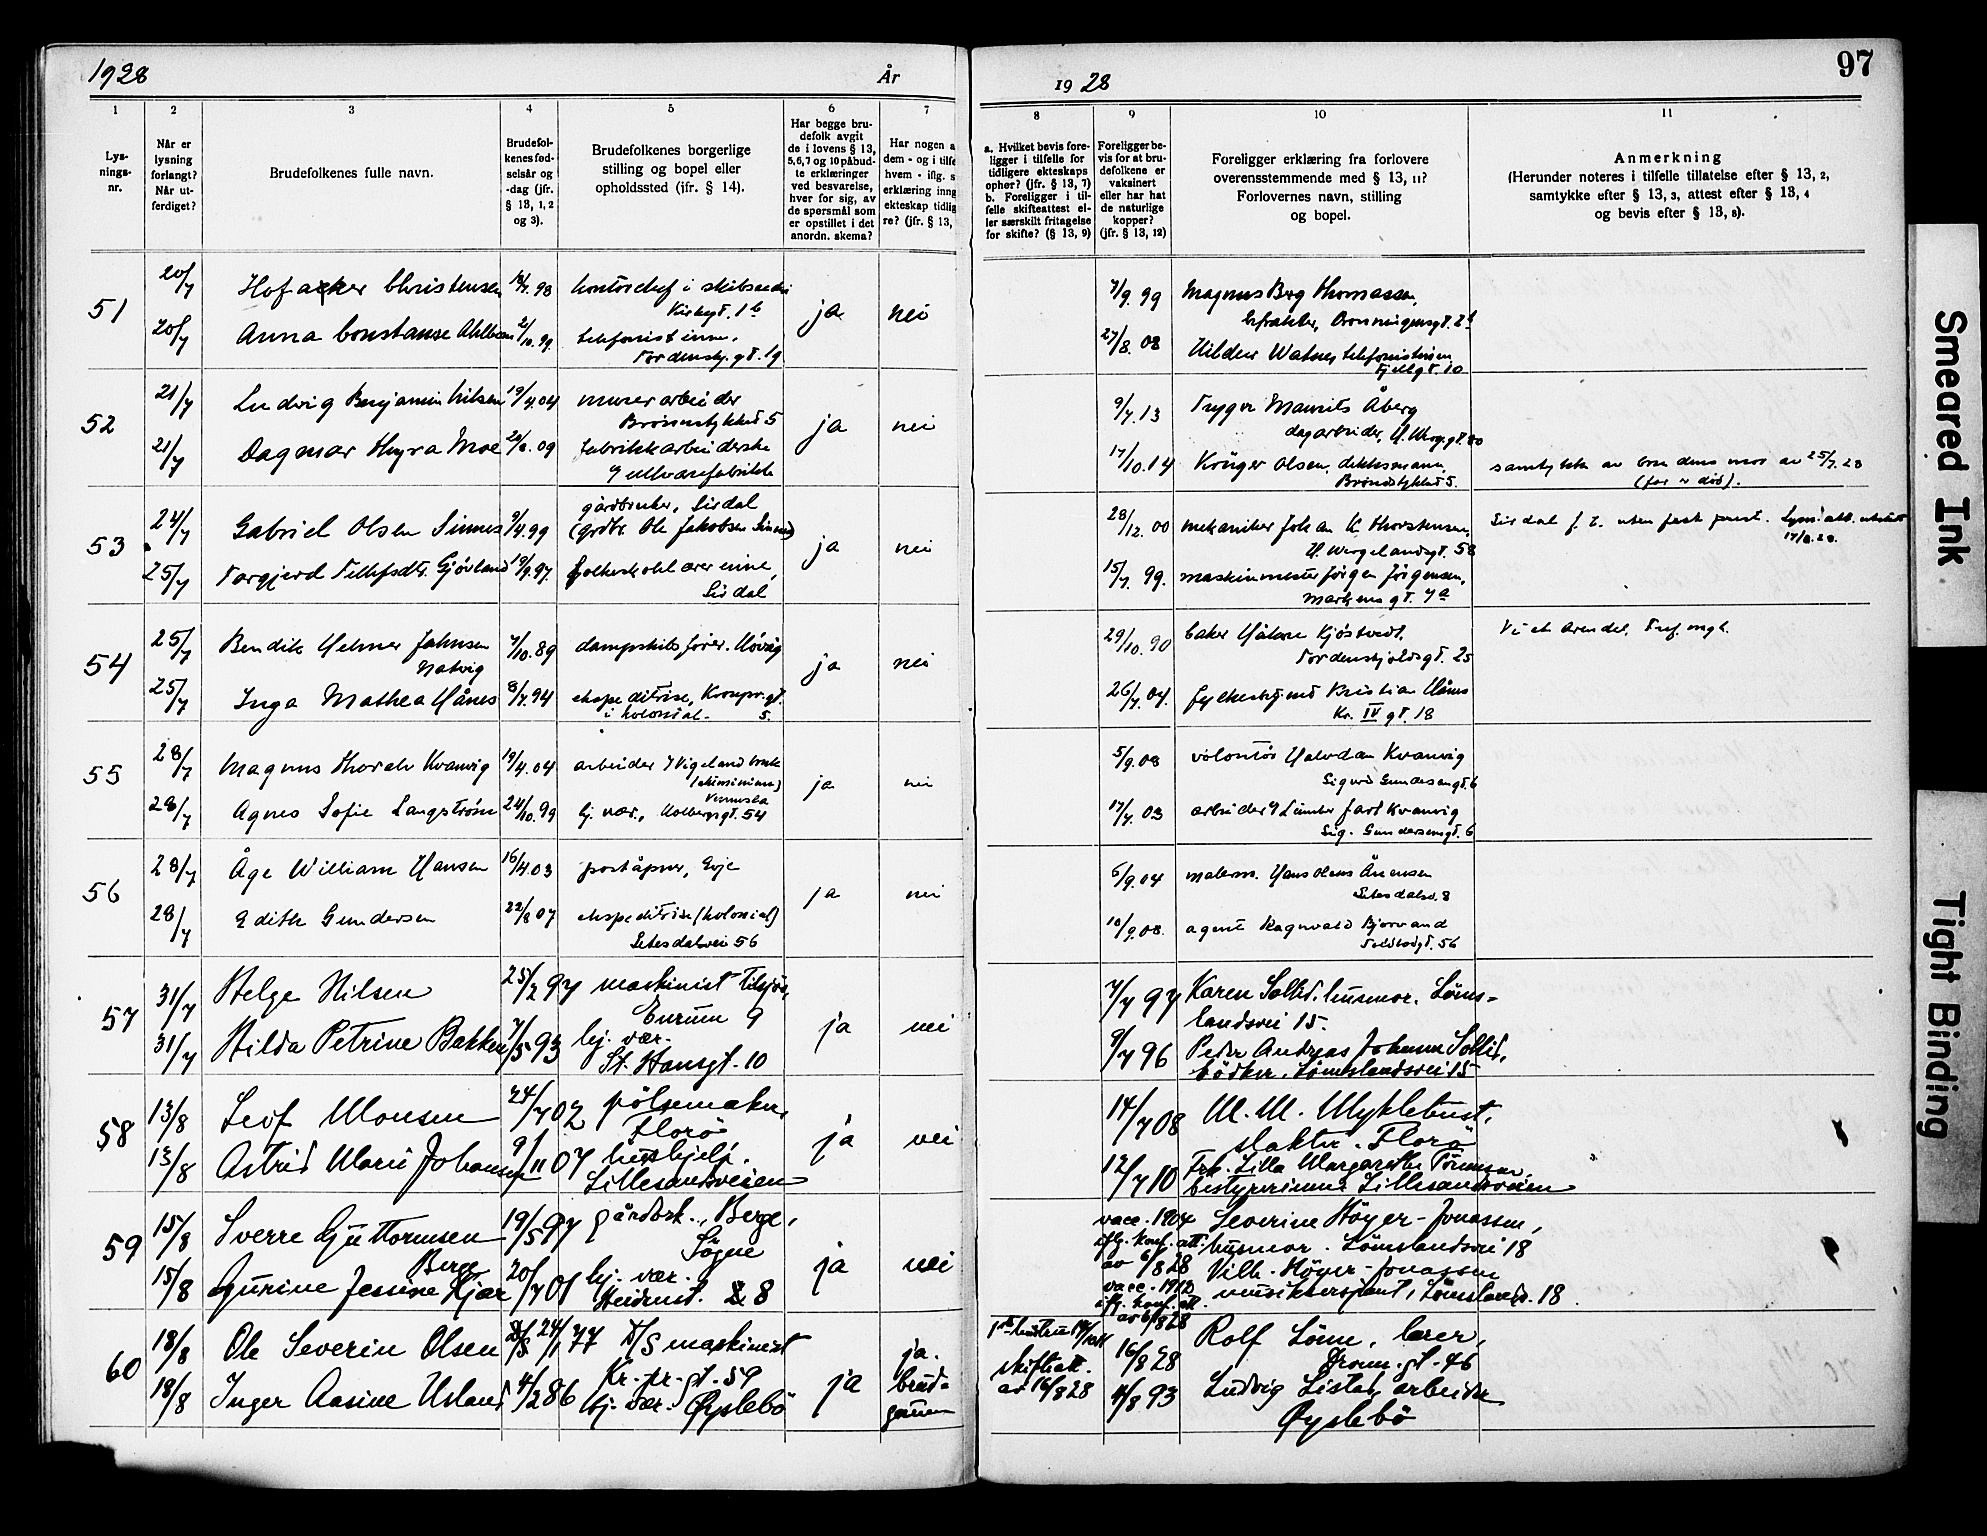 1928
År
19 28
97
1
2
3
4
5
6
7
8
9
10
11
Lys-
nings-
nr.
Når er
lysning
forlangt?
Når ut-
ferdiget?
Brudefolkenes fulle navn.
Brudefol-
kenes fød-
selsår og
-dag (jfr.
§ 13, 1, 2
og 3).
Brudefolkenes borgerlige
stilling og bopel eller
opholdssted (jfr. § 14).
Har begge bru-
defolk avgit
de i lovens § 13,
5,6,7 og 10 påbud-
te erklæringer
ved besvarelse,
hver for sig, av
de spørsmål som
er opstillet i det
anordn. skema?
Har nogen a
dem - og i tilfe
hvem - iflg. s
erklæring inng
ekteskap tidlig
re? (jfr. § 13,
a. Hvilket bevis fore-
ligger i tilfelle for
tidligere ekteskaps
ophør? (jfr. § 13, 7)
b. Foreligger i til-
felle skifteattest el-
ler særskilt fritagelse
for skifte? (§ 13, 9)
Foreligger be-
vis for at bru-
defolkene er
vaksinert
eller har hat
de naturlige
kopper?
(jfr. § 13, 12)
Foreligger erklæring fra forlovere
overensstemmende med § 13, 11?
Forlovernes navn, stilling
og bopel.
Anmerkning
(Herunder noteres i tilfelle tillatelse efter § 13, 2,
samtykke efter § 13, 3, attest efter § 13, 4
og bevis efter § 13, 8).
51
20/7 Hofacker Christensen 98 kontorchef i
Kirkegt. 1b ja nei
7/9. 99 Magnus Berg Thomassen,
Dronningensgt. 2
20/7 Anna Constanse 2/10. 99. telefonistinne,
Tordenskj. gt. 19
27/8. 08 telefonistinne
Fjellgt. 10
52
21/7 Ludvig Benjamin Nilsen 19/4.04 murerarbeider
5 ja nei
9/7.13 Trygve Maurits Åberg
dagarbeider,
21/7 Dagmar Thyra Moe 09 fabrikkarbeiderske
17/10.14 Krüger Olsen,
5. samtykke av brudens mor av 25/7.28
(far er død).
53
24/7 Gabriel Olsen Sinnes 9/4.99 gårdbruker, Sirdal
(grdbr. Ole Jakobsen ja nei
28/12.00 mekaniker Johan K. Thorstensen,
H. Wergelandsgt. 58 Sirdal f. t. uten fast prest.
17/8.28.
25/7 Torgjerd Tellefsdtr. Gjövland 19/9.97. folkeskolelærerinne,
Sirdal
15/7. 99. maskinmester Jörgen Jörgensen,
Markens gt. 7a
54
25/7 Bendik Helmer Johnsen
Natvig 7/10.89 dampskibsfører. Hövåg ja nei
29/10.90 baker Håkon Kjöstvedt.
Tordenskjoldsgt. 25
Viet Arendal,
25/7 Inga Mathea Hånes 8/7.94 ekspeditrise, Kronpr. gt.
i kolonial. 5.
26/7.04. Kristian Hånes
Kr. IV gt. 18
55
28/7 Magnus Thoralv Kvanvig 19/4.04 arbeider
Vennesla ja nei
5/9.08 volontör Halvdan Kvanvig
Sigurd Gundersengt. 6
28/7 Agnes Sofie Langström 24/10.99 hj. vær., Holbergsgt. 54
17/7.03 arbeider Kvanvig
Sig. Gundersensgt. 6
56
28/7 Åge William Hansen 16/4.03 poståpner, Evje ja nei
6/9.04 malerm. Hans Olaus
Setesdalsv. 8
28/7 Edith Gundersen 22/8 07 ekspeditrise (kolonial)
Setesdalsvei 56
10/9.08. agent Ragnvald Bjorvand
Tollbodgt. 56
57
31/7 Helge Nilsen 25/2 97 maskinist
9 ja nei
7/7 97 Karen Sollid. husmor. Löms-
landsvei 15.
31/7 Hilda Petrine Bakken 7/5 93 hj. vær.
St. Hansgt. 10
9/7 96 Peder Andreas Johannes Sollid,
bödker. Lömslandsvei 15
58
13/8 Leif Monsen 24/7 02 pölsemaker,
Florö ja nei
14/7 08 M. M. Myklebust,
slakter. Florö
13/8 Astrid Marie Johansen 9/11 07 hushjelp.
Lillesandsveien
12/7 10 Frk. Lilla Margarethe
bestyrerinne Lillesandsveien
59
15/8 Sverre Guttormsen
Berge 19/5 97 gårdbrk., Berge,
Søgne ja nei
vacc. 1904
iflg. konf. att.
av 6/8 28 Severine Höyer-Jonassen,
husmor. Lömslandsvei 18
15/8 Gurine Jessine Kjær 20/7 01 hj. vær.
8
vacc. 1912
iflg. konf. att.
av 6/8 28 Vilh. Höyer-Jonassen
musikksersjant, Lömslandsv. 18
60
18/8 Ole Severin Olsen 24/1 77 D/S maskinist
Kr. pr. gt. 59 ja ja.
brud-
gommen
skifteatt.
av 16/8 28
16/8 28 Rolf Lönn, lærer,
Dronn. gt. 46
18/8 Inger Aasine Usland 4/2 86 hj. vær. Øyslebö
4/8 93 Ludvig arbeider
Øyslebö
Smeared Ink
Tight Binding